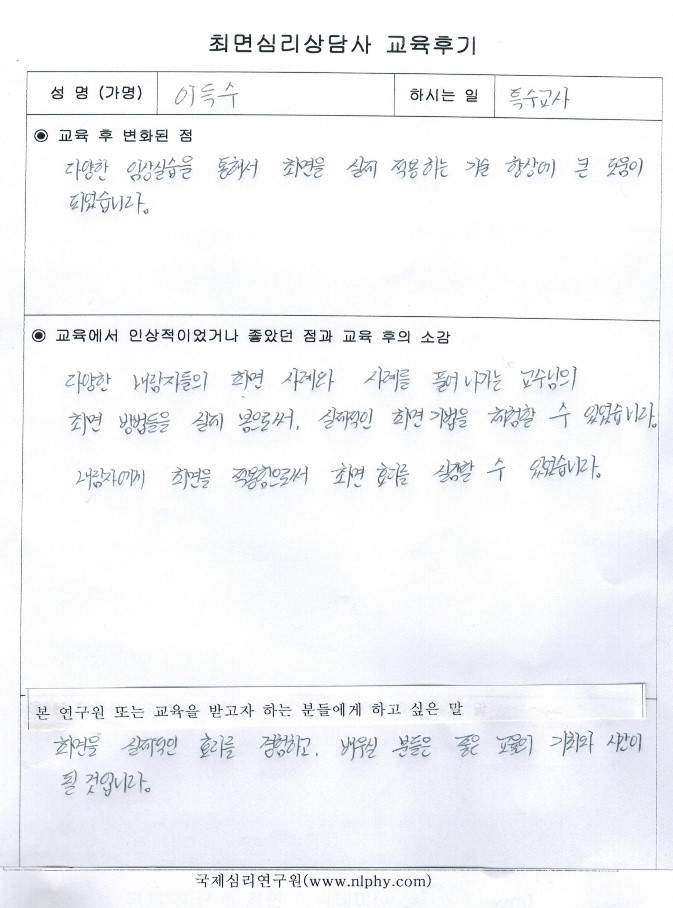 최면심리상담사 교육후기
성 명 (가명) 이득수 하시는 일 특수교사
◉ 교육 후 변화된 점
다양한 임상실습을 통해서 최면을 실제 적용하는 기술 향상에 큰 도움이
되었습니다.
◉ 교육에서 인상적이었거나 좋았던 점과 교육 후의 소감
다양한 내담자들의 최면 사례와 사례를 풀어 나가는 교수님의
최면 방법들을 실제 봄으로써, 실제적인 최면기법을 체험할 수 있었습니다.
내담자에게 최면을 적용함으로써 최면 효과를 실감할 수 있었습니다.
본 연구원 또는 교육을 받고자 하는 분들에게 하고 싶은 말
최면을 실제적인 효과를 경험하고, 배우실 분들은 좋은 교육의 기회와 시간이
될 것입니다.
국제심리연구원(www.nlphy.com)